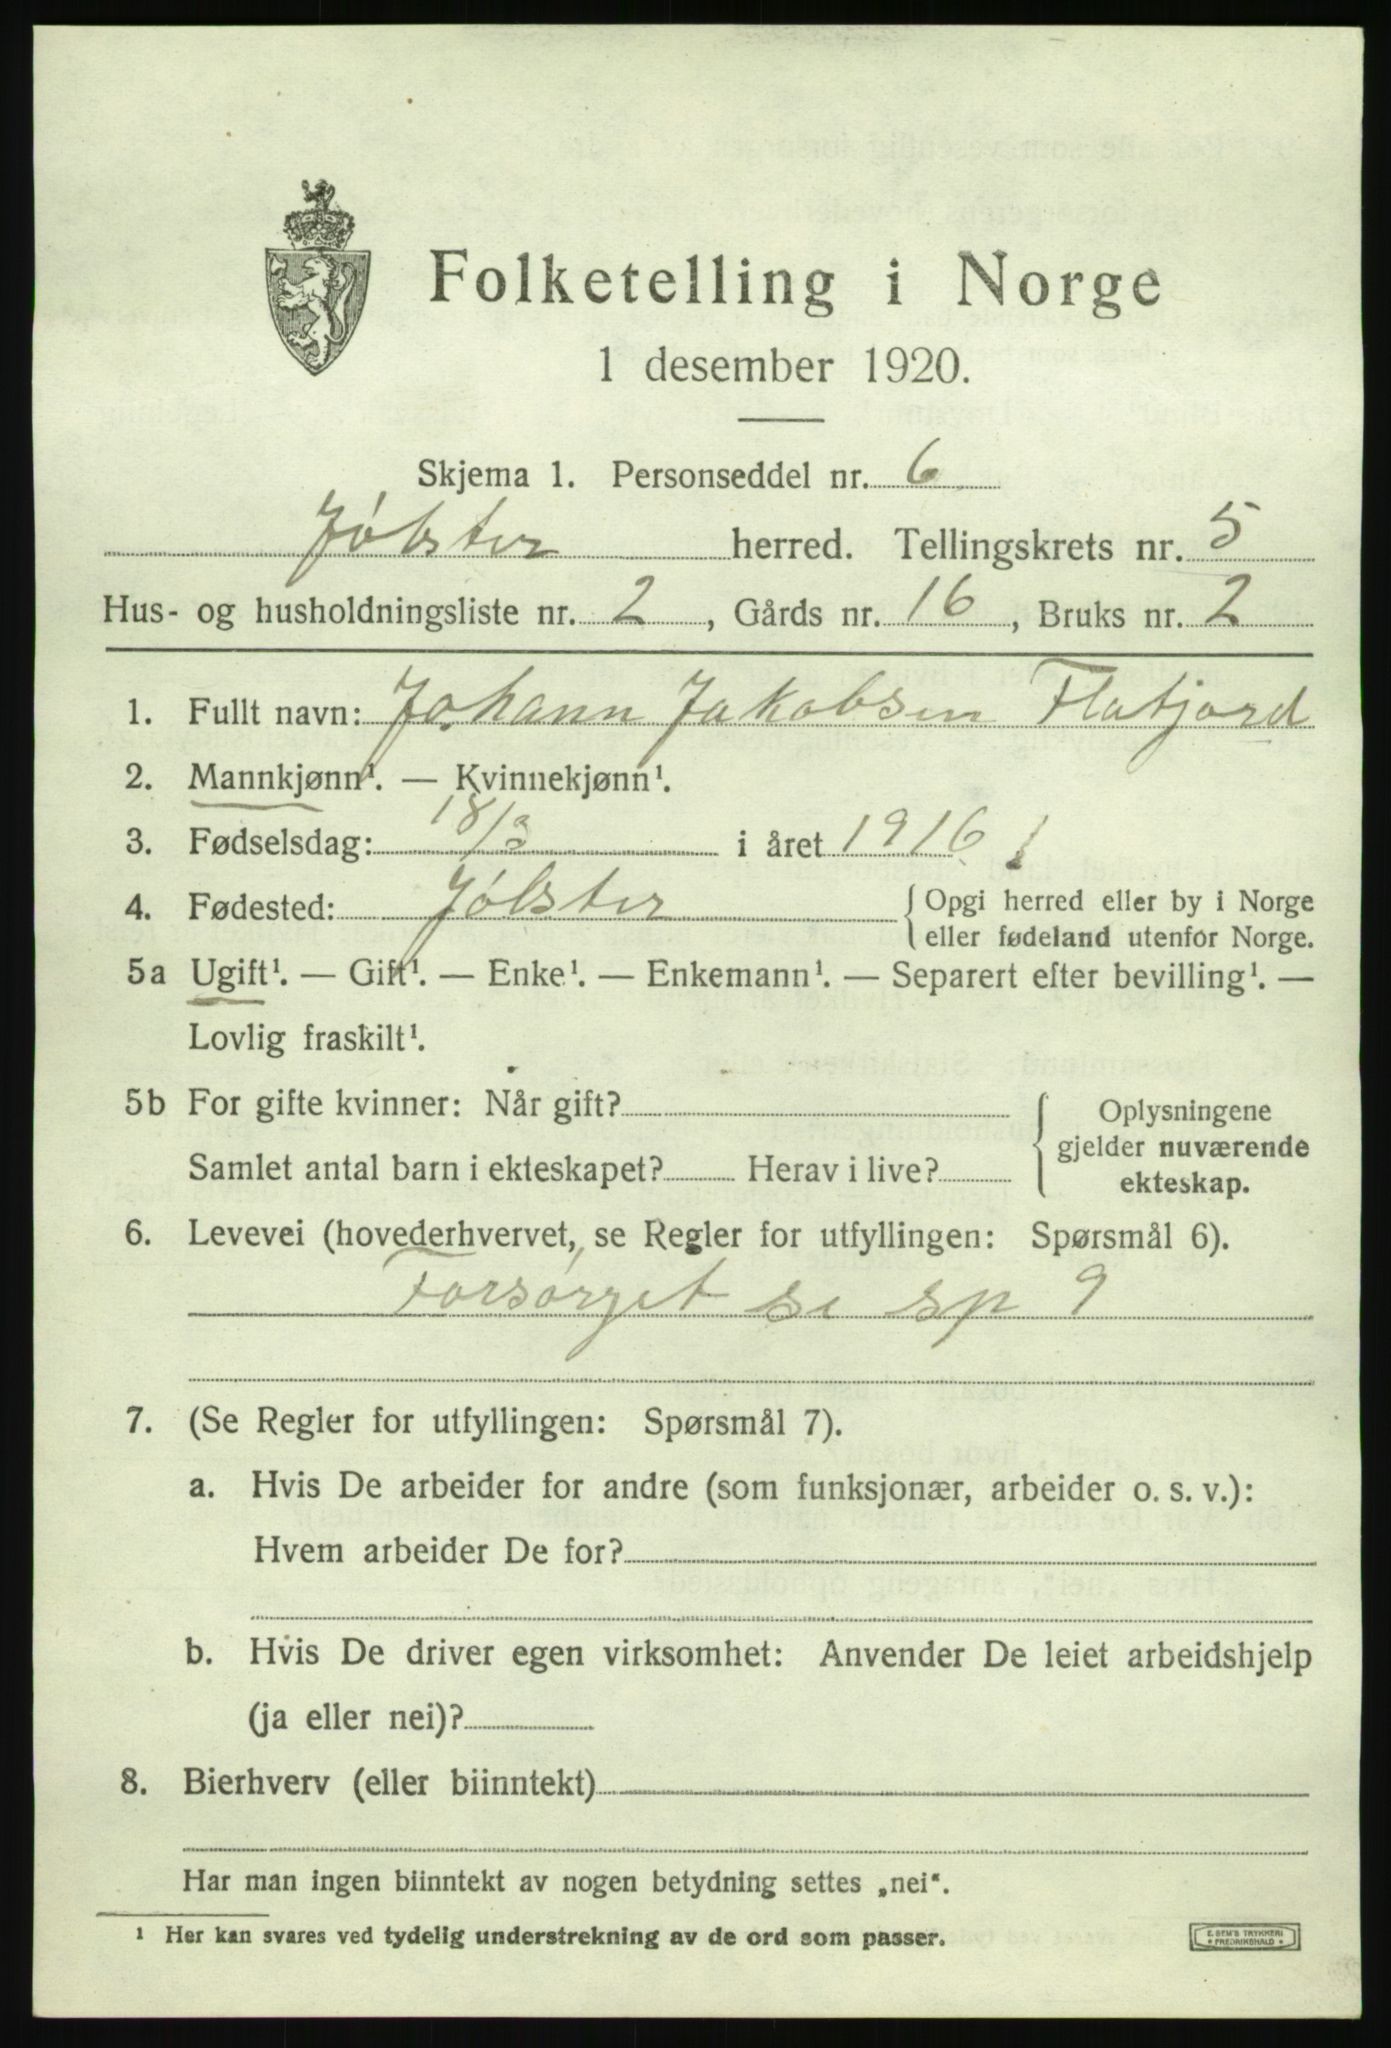 Folketelling i Norge
1 desember 1920.
Skjema 1. Personseddel nr. 6
Jølster herred. Tellingskrets nr. 5
Hus- og husholdningsliste nr. 2, Gårds nr. 16, Bruks nr. 2
1. Fullt navn: Johann Jakobsen Flatjord
2. Mannkjønn¹. — Kvinnekjønn¹.
3. Fødselsdag: 18/3 i året 1916 1
4. Fødested: Jølster { Opgi herred eller by i Norge
eller fødeland utenfor Norge.
5a Ugift¹. — Gift¹. — Enke¹. — Enkemann¹. — Separert efter bevilling¹. —
Lovlig fraskilt¹.
5b For gifte kvinner: Når gift?
Samlet antal barn i ekteskapet? Herav i live?
{ Oplysningene
gjelder nuværende
ekteskap.
6. Levevei (hovederhvervet, se Regler for utfyllingen: Spørsmål 6).
Forsørget se sp 9
7. (Se Regler for utfyllingen: Spørsmål 7).
a. Hvis De arbeider for andre (som funksjonær, arbeider o. s. v.):
Hvem arbeider De for?
b. Hvis De driver egen virksomhet: Anvender De leiet arbeidshjelp
(ja eller nei)?
8. Bierhverv (eller biinntekt)
Har man ingen biinntekt av nogen betydning settes „nei".
¹ Her kan svares ved tydelig understrekning av de ord som passer.
E. SEM'S TRYKKERI
FREDRIKSHALD